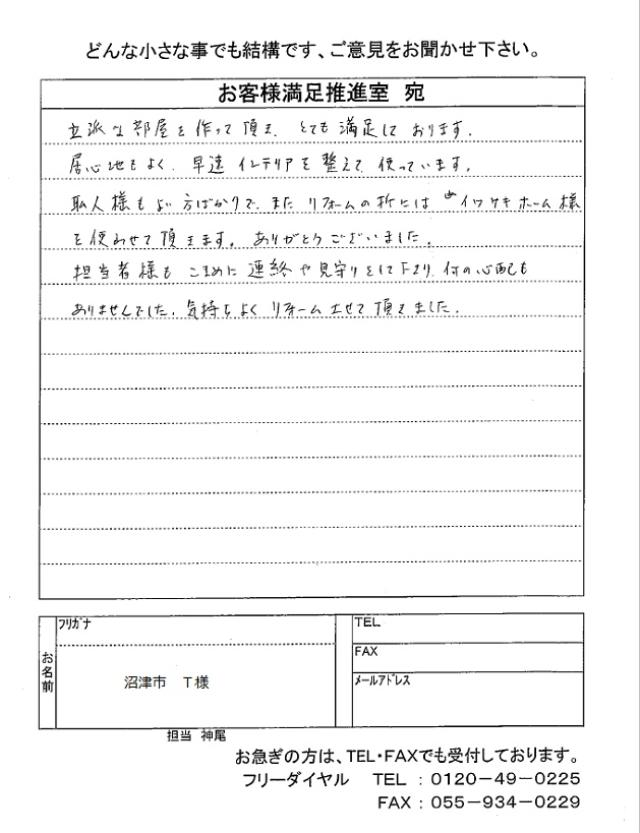 どんな小さな事でも結構です、ご意見をお聞かせ下さい。
お客様満足推進室 宛
立派な部屋を作って頂き、とても満足しております。
居心地もよく、早速インテリアを整えて、使っています。
職人様もよい方ばかりで、また リフォームの折には イワサキホーム様
を使わせて頂きます。ありがとうございました。
担当者様も こまめに連絡や見守りをして下さり、何の心配も
ありませんでした。気持ちよく リフォームさせて頂きました。
フリガナ
お名前
沼津市 T様
TEL
FAX
メールアドレス
担当 神尾
お急ぎの方は、TEL・FAXでも受付しております。
フリーダイヤル TEL : 0120-49-0225
FAX : 055-934-0229